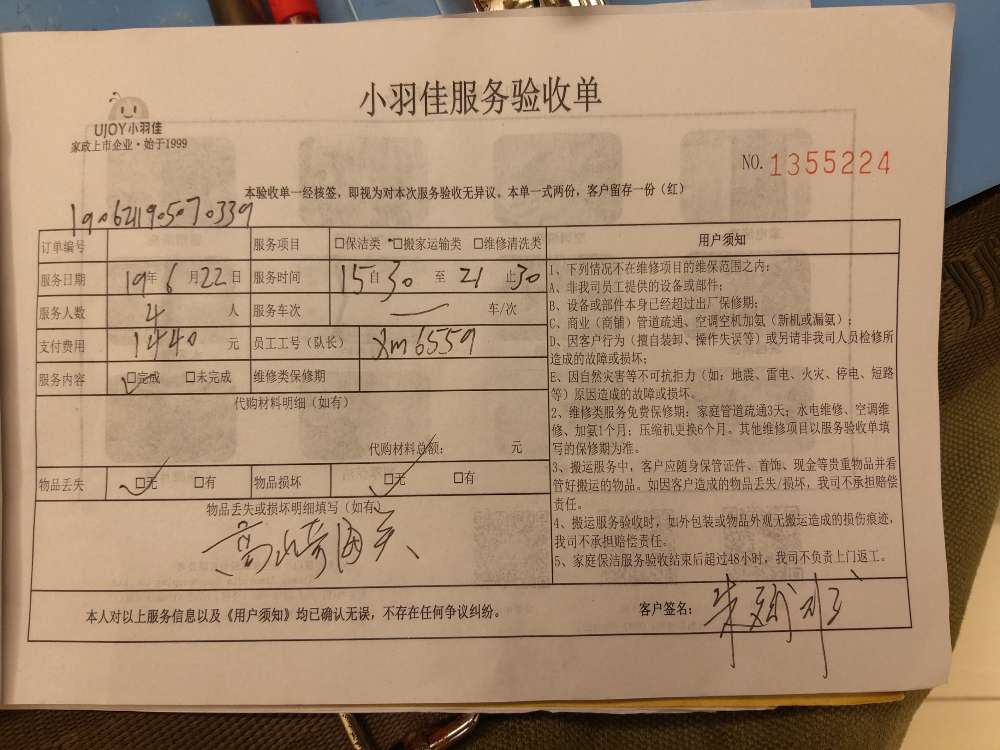 小羽佳服务验收单
UJOY小羽佳
家政上市企业·始于1999
NO. 1355224
本验收单一经核签，即视为对本次服务验收无异议。本单一式两份，客户留存一份（红）
1906211905070339
订单编号 服务项目 □保洁类 □搬家运输类 □维修清洗类 用户须知
服务日期 19年 6月22日 服务时间 15自30 至 21止30
服务人数 4 人 服务车次 — 车/次
支付费用 1440 元 员工工号（队长） Xm6559
服务内容 □完成 □未完成 维修类保修期
代购材料明细（如有）
代购材料总额： 元
物品丢失 □无 □有 物品损坏 □无 □有
物品丢失或损坏明细填写（如有）
高崎海关
1、下列情况不在维修项目的维保范围之内：
A、非我司员工提供的设备或部件；
B、设备或部件本身已经超过出厂保修期；
C、商业（商铺）管道疏通、空调空机加氨（新机或漏氨）；
D、因客户行为（擅自装卸、操作失误等）或另请非我司人员检修所
造成的故障或损坏；
E、因自然灾害等不可抗拒力（如：地震、雷电、火灾、停电、短路
等）原因造成的故障或损坏。
2、维修类服务免费保修期：家庭管道疏通3天；水电维修、空调维
修、加氨1个月；压缩机更换6个月。其他维修项目以服务验收单填
写的保修期为准。
3、搬运服务中，客户应随身保管证件、首饰、现金等贵重物品并看
管好搬运的物品。如因客户造成的物品丢失/损坏，我司不承担赔偿
责任。
4、搬运服务验收时，如外包装或物品外观无搬运造成的损伤痕迹，
我司不承担赔偿责任。
5、家庭保洁服务验收结束后超过48小时，我司不负责上门返工。
本人对以上服务信息以及《用户须知》均已确认无误，不存在任何争议纠纷。 客户签名：